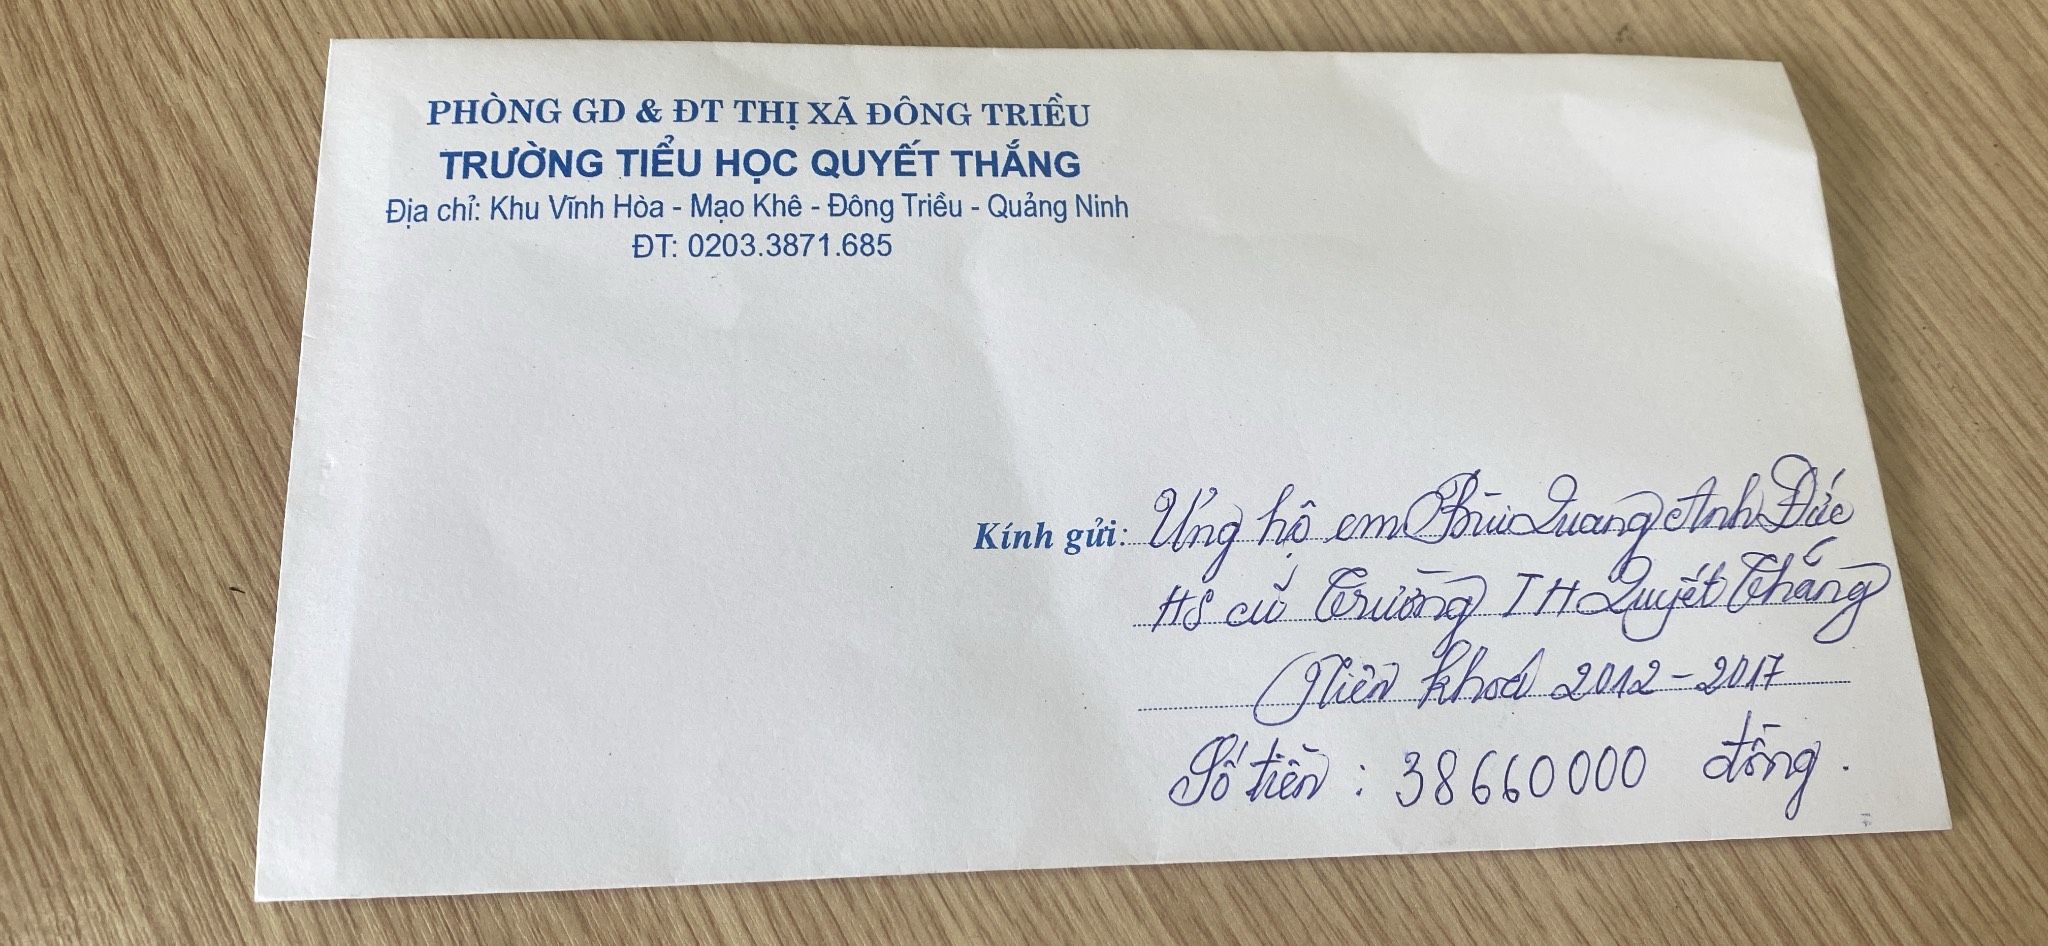 PHÒNG GD & ĐT THỊ XÃ ĐÔNG TRIỀU
TRƯỜNG TIỂU HỌC QUYẾT THẮNG
Địa chỉ: Khu Vĩnh Hòa - Mạo Khê - Đông Triều - Quảng Ninh
ĐT: 0203.3871.685
Kính gửi: Ủng hộ em Bùi Quang Anh Đức
HS cũ Trường TH Quyết Thắng
Niên khoá 2012 - 2017
Số tiền : 38660000 đồng.